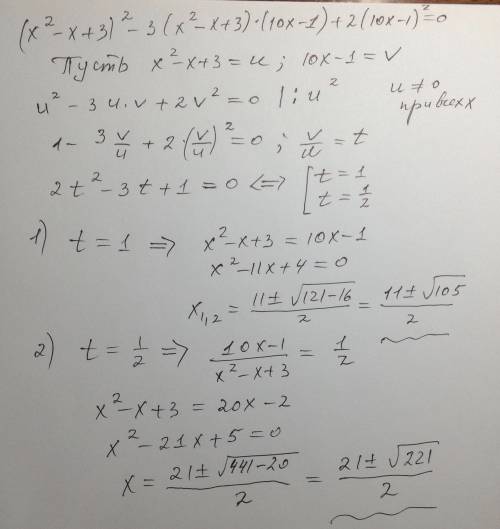 (x² - x + 3)² - 3 (x² - x + 3) · (10x - 1) + 2 (10x - 1)² = 0
Пусть x² - x + 3 = u ; 10x - 1 = v
u² - 3 u · v + 2 v² = 0 | : u² u ≠ 0
при всех x
1 - 3 v/u + 2 · (v/u)² = 0 ; v/u = t
2t² - 3t + 1 = 0 <=> [ t = 1
t = 1/2
1) t = 1 => x² - x + 3 = 10x - 1
x² - 11x + 4 = 0
x₁,₂ = (11 ± √(121 - 16))/2 = (11 ± √105)/2
2) t = 1/2 => (10x - 1)/(x² - x + 3) = 1/2
x² - x + 3 = 20x - 2
x² - 21x + 5 = 0
x = (21 ± √(441 - 20))/2 = (21 ± √221)/2